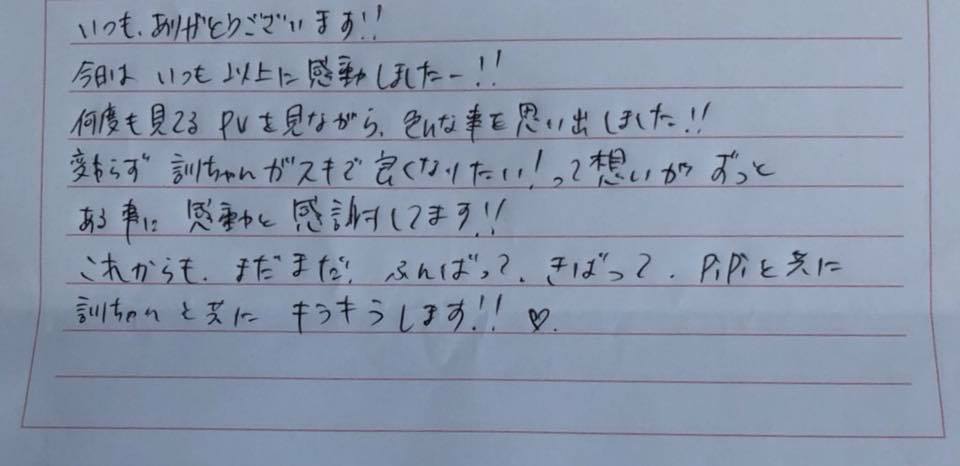 いつも、ありがとうございます!!
今日は いつも以上に感動しましたー!!
何度も見てる PVを見ながら、色んな事を思い出しました!!
変わらず 訓ちゃんがスキで 良くなりたい!って想いが ずっと
ある事に 感動と 感謝してます!!
これからも、まだまだ、ふんばって、きばって、PiPiと共に
訓ちゃんと共に キラキラします!! ♡.